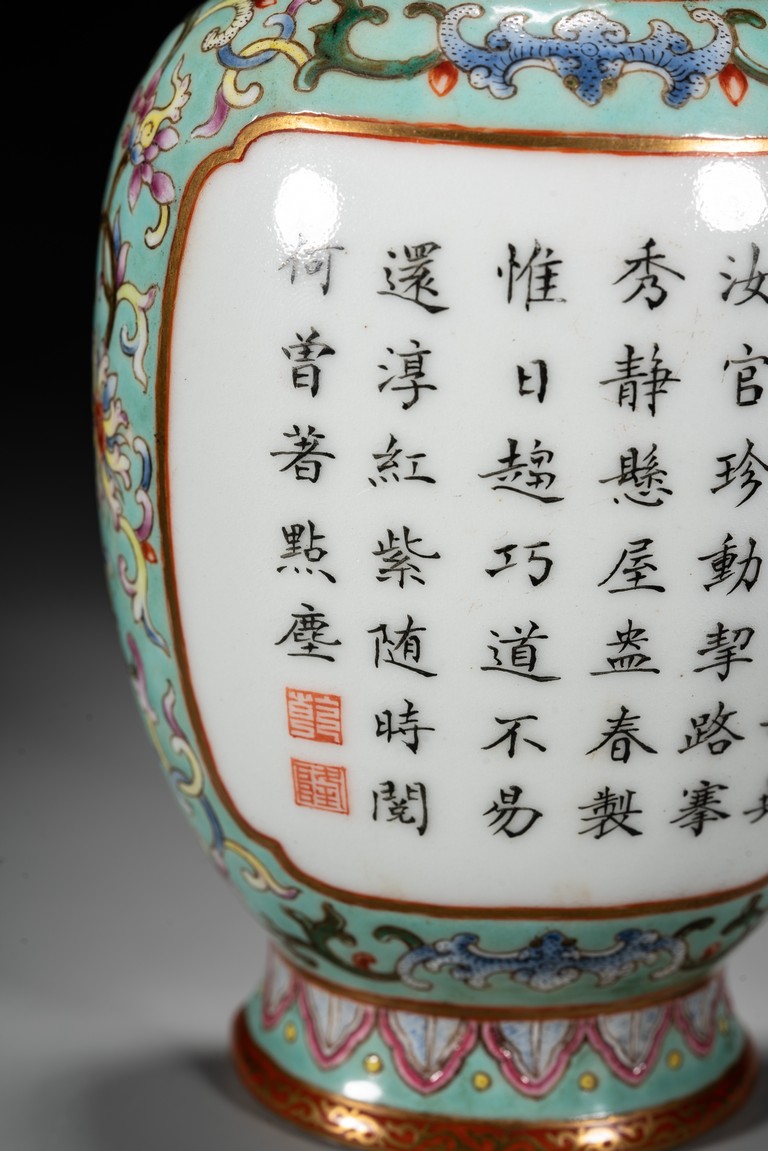 汝官珍動挈路搴
秀静懸屋盎春製
惟日趨巧道不易
還淳紅紫随時閱
何曾著點塵
乾
隆